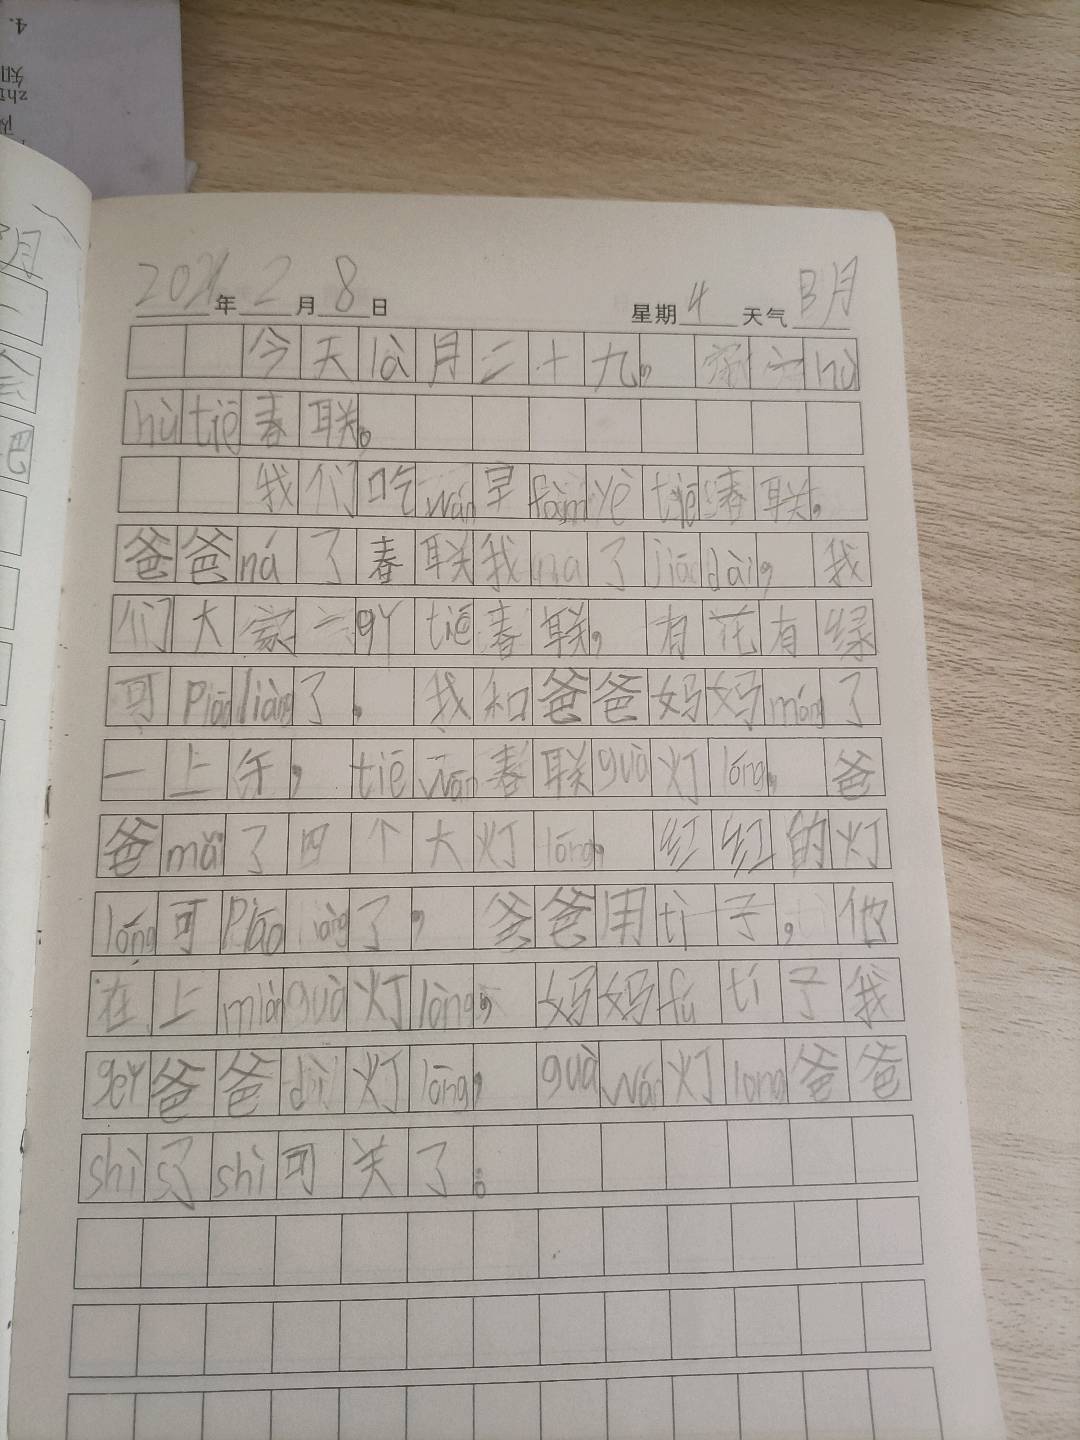 2021年2月8日 星期4 天气日月
今天là月二十九，家家hù
hù tiē春联。
我们吃wán早fàn yè tiē春联，
爸爸ná了春联我na了jiāo dài，我
们大家一qǐ tiē春联，有花有绿
可piāo liàng了。我和爸爸妈妈máng了
一上午，tiē wán春联guà灯lóng，爸
爸mǎi了四个大灯lóng，红红的灯
lóng可piāo liàng了，爸爸用tì子，他
在上miàn guà灯lóng，妈妈fú tí子我
gěi爸爸dì灯lōng，guà wán灯long爸爸
shì了shì可关了。